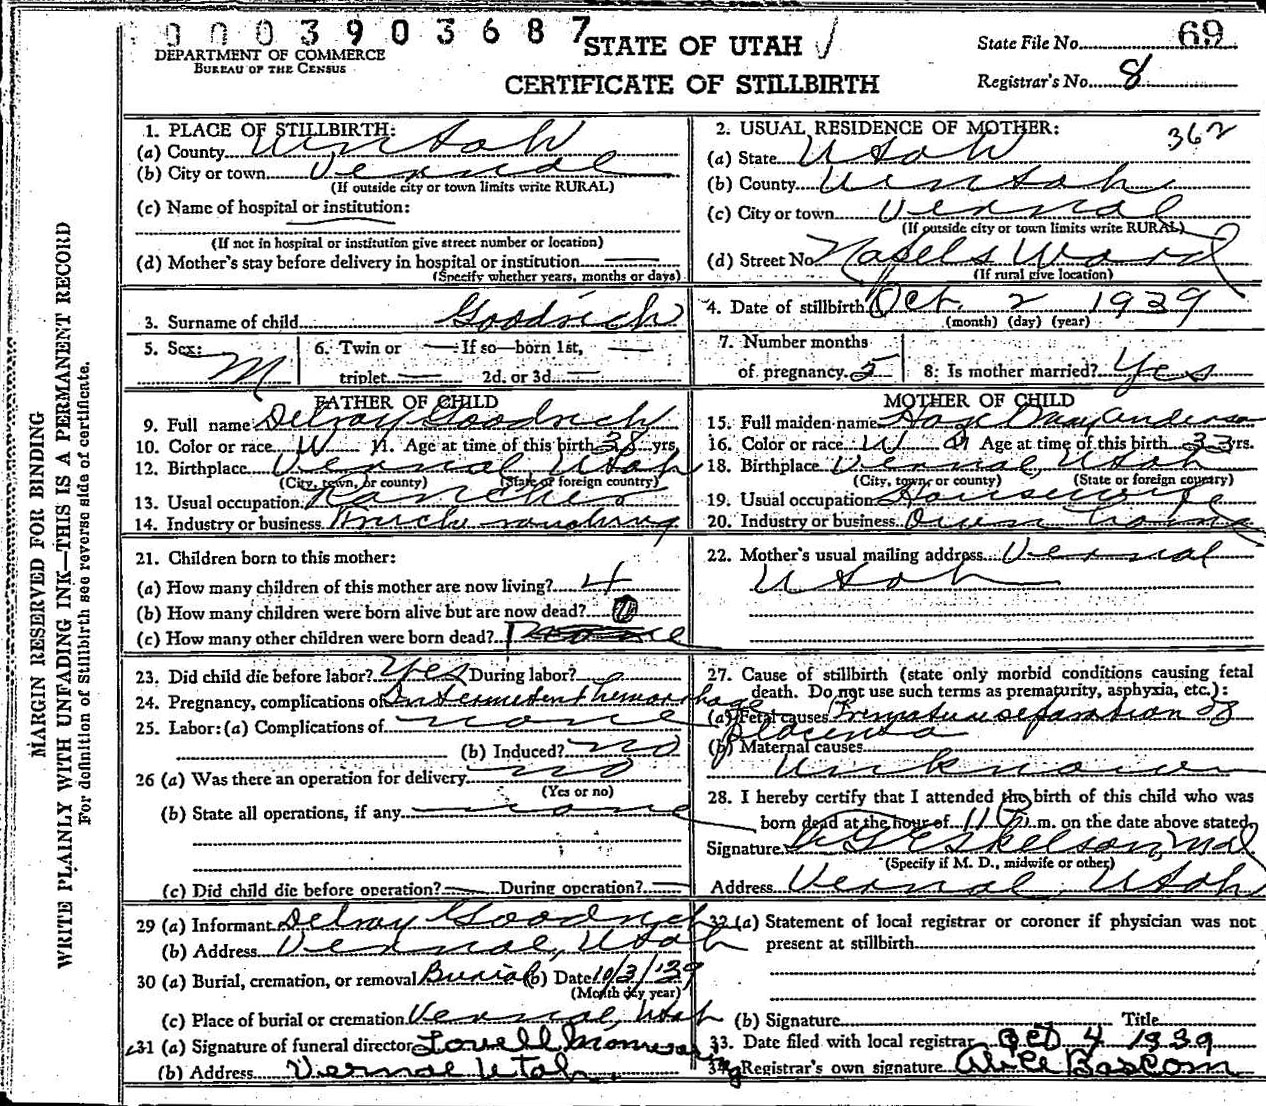 0003903687
STATE OF UTAH
DEPARTMENT OF COMMERCE
BUREAU OF THE CENSUS
CERTIFICATE OF STILLBIRTH
State File No. 69
Registrar's No. 8
MARGIN RESERVED FOR BINDING
WRITE PLAINLY WITH UNFADING INK—THIS IS A PERMANENT RECORD
For definition of Stillbirth see reverse side of certificate.
1. PLACE OF STILLBIRTH:
(a) County Uintah
(b) City or town Vernal
(If outside city or town limits write RURAL)
(c) Name of hospital or institution:
(If not in hospital or institution give street number or location)
(d) Mother's stay before delivery in hospital or institution
(Specify whether years, months or days)
2. USUAL RESIDENCE OF MOTHER: 362
(a) State Utah
(b) County Uintah
(c) City or town Vernal
(If outside city or town limits write RURAL)
(d) Street No. Napels Ward
(If rural give location)
3. Surname of child Goodrich
4. Date of stillbirth Oct. 2 1939
(month) (day) (year)
5. Sex: M
6. Twin or — If so—born 1st, —
triplet — 2d. or 3d —
7. Number months
of pregnancy 5
8. Is mother married? Yes
FATHER OF CHILD
9. Full name Delray Goodrich
10. Color or race W 11. Age at time of this birth 38 yrs.
12. Birthplace Vernal, Utah
(City, town, or county) (State or foreign country)
13. Usual occupation Rancher
14. Industry or business
MOTHER OF CHILD
15. Full maiden name
16. Color or race W Age at time of this birth 33 yrs.
18. Birthplace Vernal, Utah
(City, town or county) (State or foreign country)
19. Usual occupation Housewife
20. Industry or business Own home
21. Children born to this mother:
(a) How many children of this mother are now living? 4
(b) How many children were born alive but are now dead? 0
(c) How many other children were born dead?
22. Mother's usual mailing address Vernal
Utah
23. Did child die before labor? Yes During labor?
24. Pregnancy, complications of Intermitent hemorrhage
25. Labor: (a) Complications of none
(b) Induced? no
26 (a) Was there an operation for delivery no
(Yes or no)
(b) State all operations, if any none
(c) Did child die before operation? — During operation? —
27. Cause of stillbirth (state only morbid conditions causing fetal
death. Do not use such terms as prematurity, asphyxia, etc.):
(a) Fetal causes Premature separation of
placenta
(b) Maternal causes
Unknown
28. I hereby certify that I attended the birth of this child who was
born dead at the hour of 11 P.m. on the date above stated.
Signature Eskelson, MD
(Specify if M. D., midwife or other)
Address Vernal, Utah
29 (a) Informant Delray Goodrich
(b) Address Vernal, Utah
30 (a) Burial, cremation, or removal Burial (b) Date 10/3/39
(Month day year)
(c) Place of burial or cremation Vernal, Utah
31 (a) Signature of funeral director Lowell
(b) Address Vernal Utah.
32 (a) Statement of local registrar or coroner if physician was not
present at stillbirth
(b) Signature Title
33. Date filed with local registrar Oct 4 1939
34. Registrar's own signature Alice Bascom